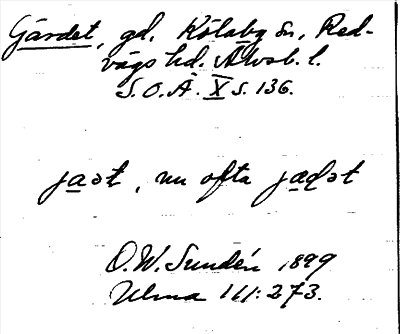 Gärdet, gd. Kölaby sn, Red-
vägs hd. Älvsb. l.
S.O.Ä. X s. 136.
jaət, nu ofta jaḍət
O.W. Sundén 1899
Ulma 111:273.